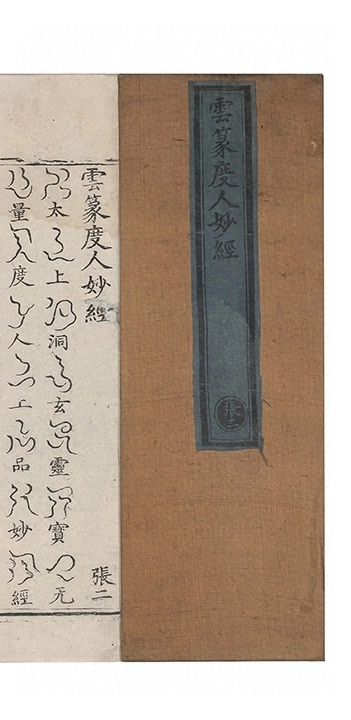 雲篆度人妙經
張二
雲篆度人妙經 張二
太上洞玄靈寶无
量度人上品妙經